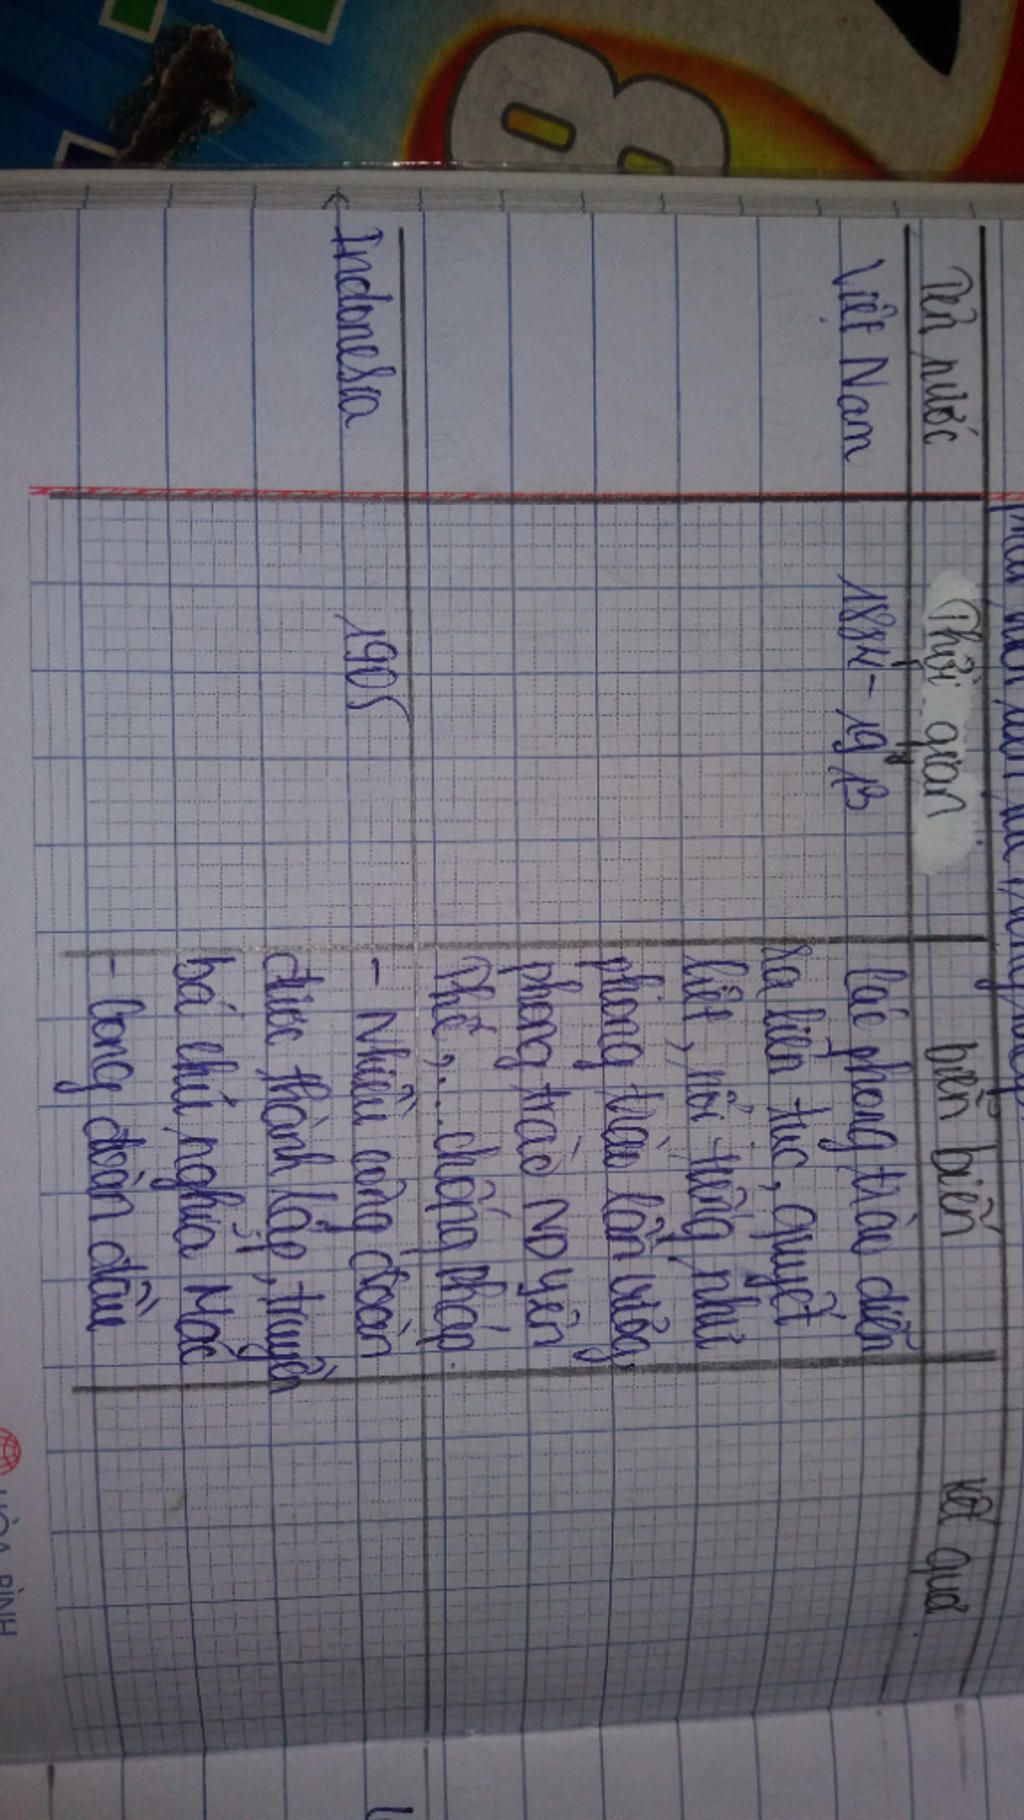 Tên nước Thời gian biễn biến kết quả
Việt Nam 1884-1913 Các phong trào diễn
ra liên tục, quyết
liệt, nổi tiếng như
phong trào Cần vương,
phong trào ND Yên
Thế,... chống Pháp.
Indonesia 1905 - Nhiều công đoàn
được thành lập, truyền
bá chủ nghĩa Mác
- Công đoàn đầu
HÒA BÌNH
8